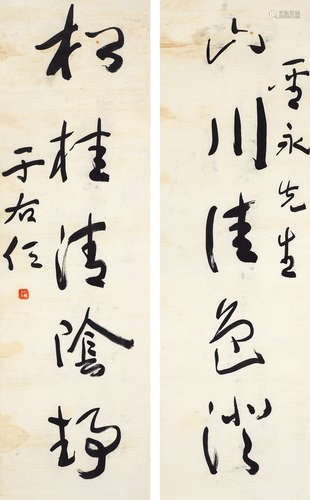 永先生
山川佳色
松桂清陰靜
于右任